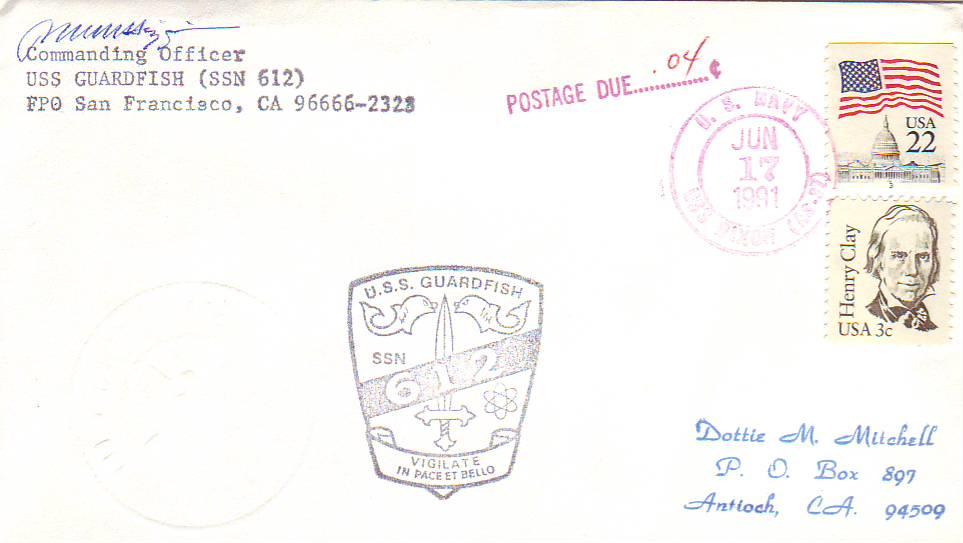 Commanding Officer
USS GUARDFISH (SSN 612)
FPO San Francisco, CA 96666-2328
POSTAGE DUE..............¢
.04
U. S. NAVY
JUN
17
1991
USS DIXON (AS-37)
USA
22
Henry Clay
USA 3c
U.S.S. GUARDFISH
SSN
612
VIGILATE
IN PACE ET BELLO
Dottie M. Mitchell
P. O. Box 897
Antioch, CA. 94509